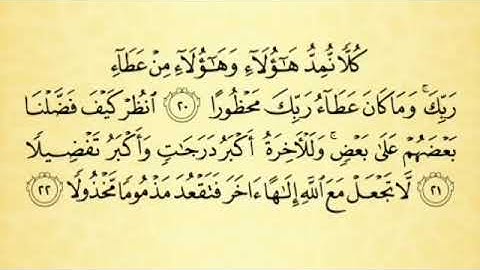 كُلًّا نُّمِدُّ هَٰٓؤُلَآءِ وَهَٰٓؤُلَآءِ مِنْ عَطَآءِ
رَبِّكَ ۚ وَمَا كَانَ عَطَآءُ رَبِّكَ مَحْظُورًا ٢٠ ٱنظُرْ كَيْفَ فَضَّلْنَا
بَعْضَهُمْ عَلَىٰ بَعْضٍ ۚ وَلَلْءَاخِرَةُ أَكْبَرُ دَرَجَٰتٍ وَأَكْبَرُ تَفْضِيلًا
٢١ لَّا تَجْعَلْ مَعَ ٱللَّهِ إِلَٰهًا ءَاخَرَ فَتَقْعُدَ مَذْمُومًا مَّخْذُولًا ٢٢